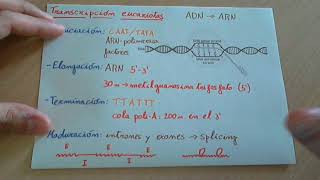 Transcripción eucariotas ADN → ARN
CAAT/TATA
ARN-polimerasa
factores
-Elongación: ARN 5'-3'
30 nt → metilguanosina trifosfato (5')
-Terminación: TTATTT
cola poli-A: 200 nt en el 3'
Maduración: intrones y exones → splicing
E E
I I